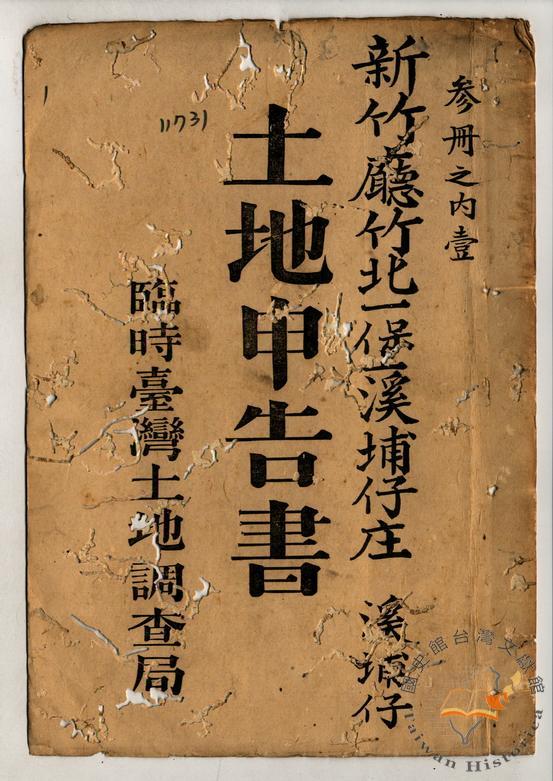 参冊之内壹
新竹廳竹北一堡溪埔仔庄 溪埔仔
土地申告書
臨時臺灣土地調查局
11731
1
國史館台灣文獻館
Taiwan Historica